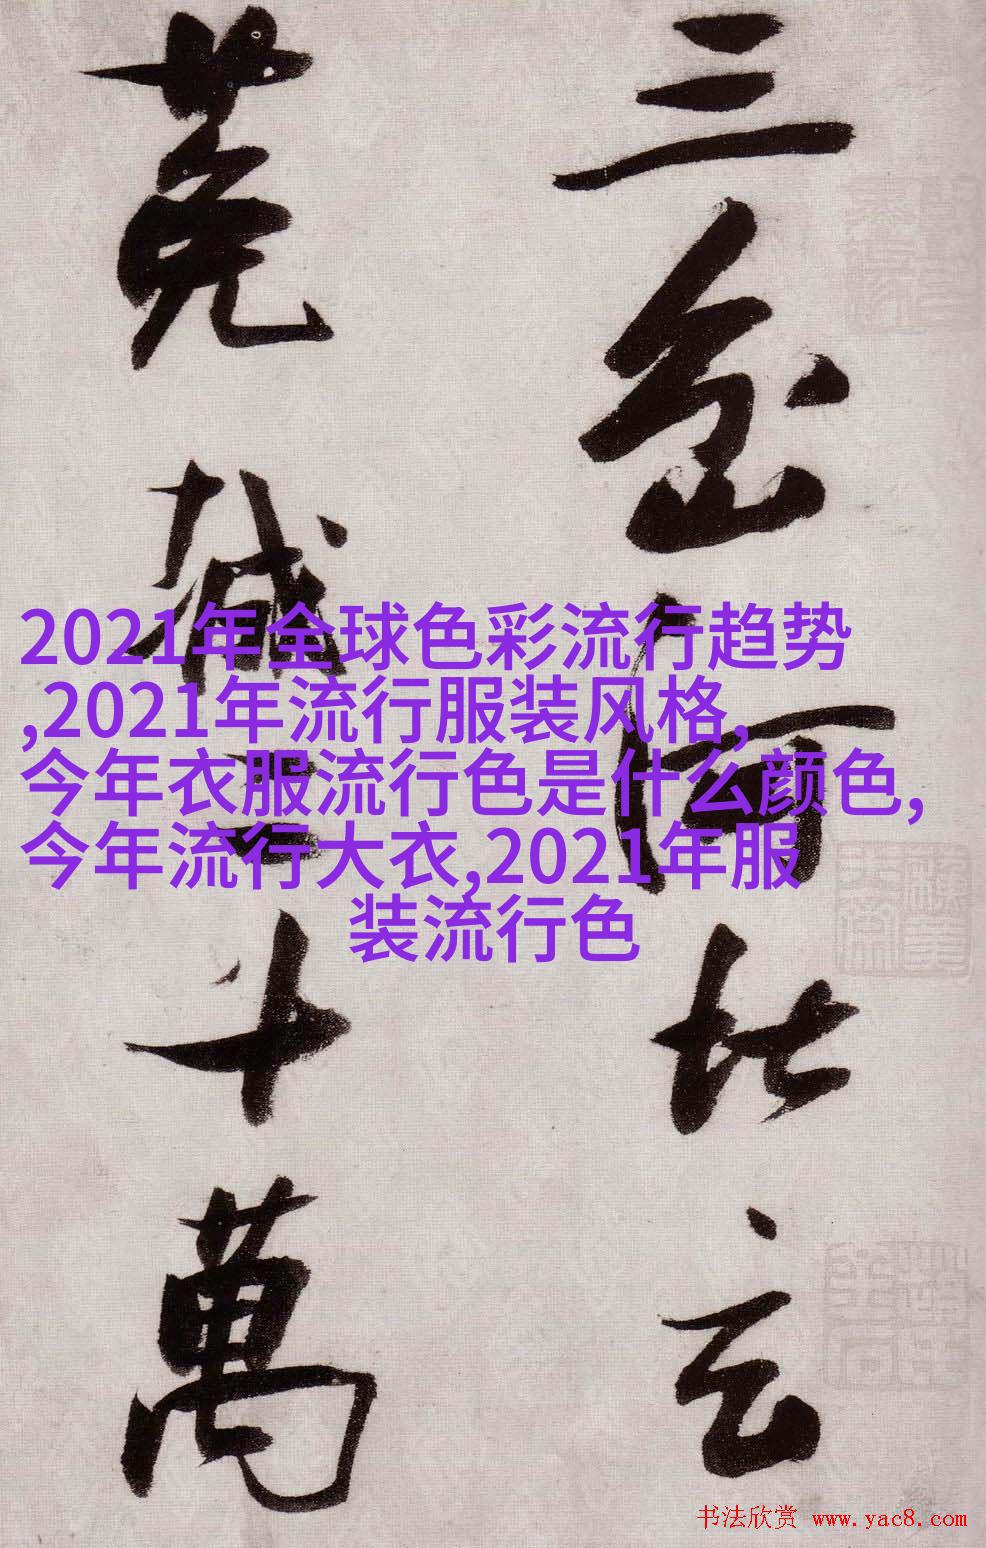 三河比云
十萬
2021年全球色彩流行趋势
,2021年流行服装风格,
今年衣服流行色是什么颜色,
今年流行大衣,2021年服
装流行色
书法欣赏 www.yac8.com